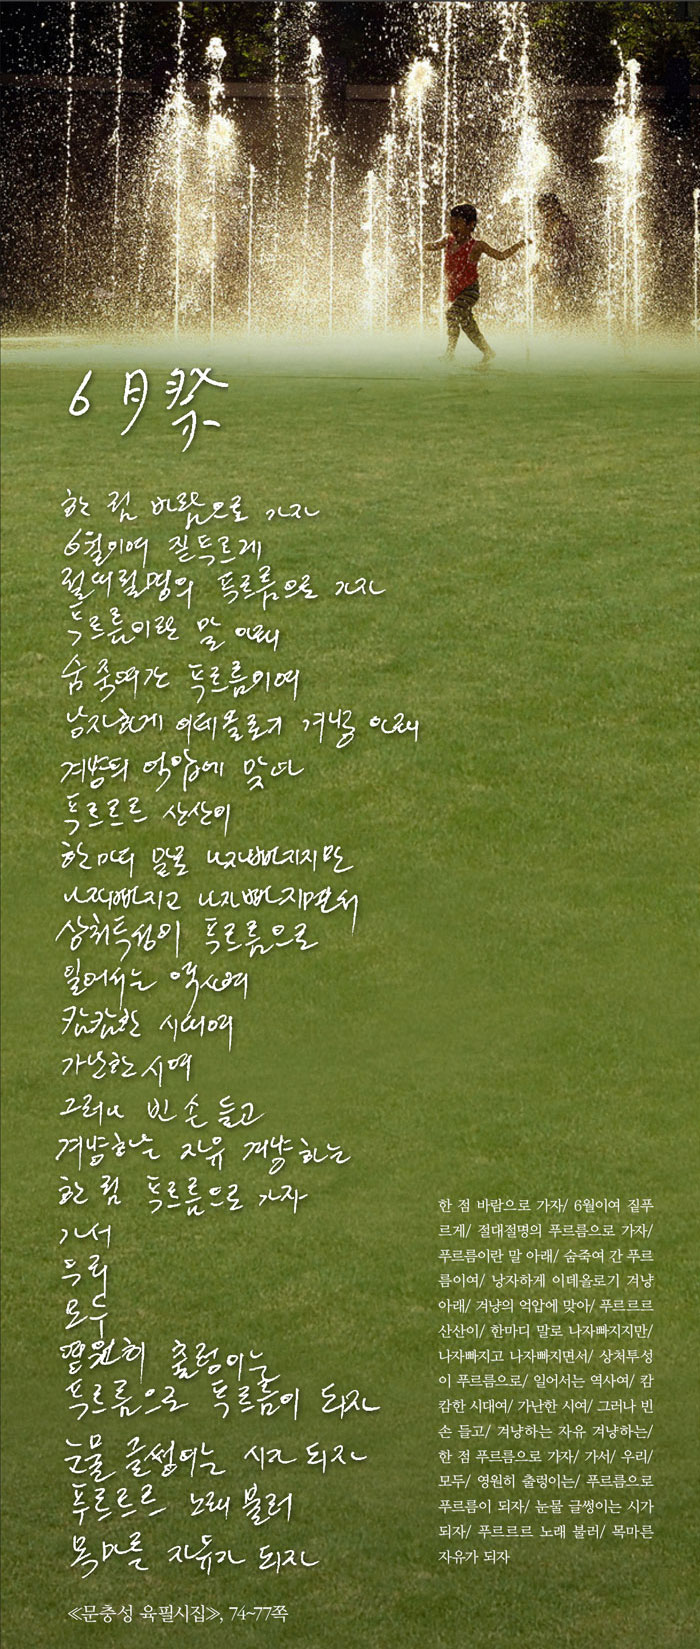 6月祭
한 점 바람으로 가자
6월이여 짙푸르게
절대절명의 푸르름으로 가자
푸르름이란 말 아래
숨죽여 간 푸르름이여
낭자하게 이데올로기 겨냥 아래
겨냥의 억압에 맞아
푸르르르 산산이
한마디 말로 나자빠지지만
나자빠지고 나자빠지면서
상처투성이 푸르름으로
일어서는 역사여
캄캄한 시대여
가난한 시여
그러나 빈 손 들고
겨냥하는 자유 겨냥하는
한 점 푸르름으로 가자
가서
우리
모두
영원히 출렁이는
푸르름으로 푸르름이 되자
눈물 글썽이는 시가 되자
푸르르르 노래 불러
목마른 자유가 되자
《문충성 육필시집》, 74~77쪽
한 점 바람으로 가자/ 6월이여 짙푸
르게/ 절대절명의 푸르름으로 가자/
푸르름이란 말 아래/ 숨죽여 간 푸르
름이여/ 낭자하게 이데올로기 겨냥
아래/ 겨냥의 억압에 맞아/ 푸르르르
산산이/ 한마디 말로 나자빠지지만/
나자빠지고 나자빠지면서/ 상처투성
이 푸르름으로/ 일어서는 역사여/ 캄
캄한 시대여/ 가난한 시여/ 그러나 빈
손 들고/ 겨냥하는 자유 겨냥하는/
한 점 푸르름으로 가자/ 가서/ 우리/
모두/ 영원히 출렁이는/ 푸르름으로
푸르름이 되자/ 눈물 글썽이는 시가
되자/ 푸르르르 노래 불러/ 목마른
자유가 되자